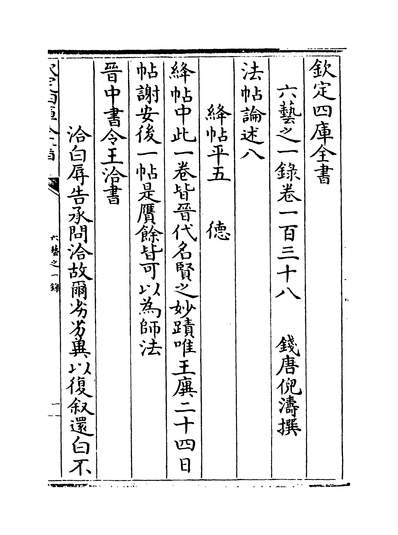 欽定四庫全書
六藝之一錄卷一百三十八　錢唐倪濤撰
法帖論述八
絳帖平五　德
絳帖中此一卷皆晉代名賢之妙蹟唯王廙二十四日
帖謝安後一帖是贋餘皆可以為師法
晉中書令王洽書
洽白屏告承問洽故爾劣劣異以復叙還白不
六藝之一錄
一